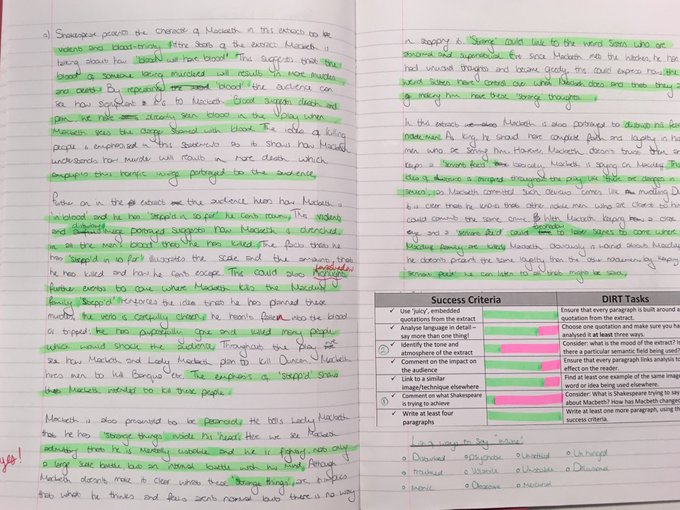 a) Shakespeare presents the character of Macbeth in this extract to be
violent and blood-thirsty. At the start of the extract Macbeth is
talking about how 'blood will have blood'. This suggests that the
blood of someone being murdered will result in more murders
and death. By repeating the blood 'blood' the audience can
see how significant it is to Macbeth. Blood suggests death and
pain. We have already seen blood in the play when
Macbeth sees the dagger stained with blood. The idea of killing
people is emphasised in this statement as it shows how Macbeth
understands how murder will result in more death which
emphasis this horrific image portrayed to the audience.
Further on in the extract the audience hears how Macbeth is
in blood and he has 'stepp'd in so far' he can't return. This violent
and disturbing image portrayed suggests how Macbeth is drenched
in all the men's blood that he has killed. The fact that he
has 'stepp'd in so far' illustrates the scale and the amount that
he has killed and how he can't escape. This could also foreshadow
further events to come where Macbeth kills the Macduff
family. 'Stepp'd' reinforces the idea that he has planned these
murders, the verb is carefully chosen, he hasn't fallen into the blood
or tripped; he has purposefully gone and killed many people
which would shock the audience. Throughout the play we
see how Macbeth and Lady Macbeth plan to kill Duncan, Macbeth
hires men to kill Banquo etc. The emphasis of 'stepp'd' shows
that Macbeth intended to kill these people.
Macbeth is also presented to be paranoid. He tells Lady Macbeth
that he has 'strange things' inside his 'head'. Here we see Macbeth
admitting that he is mentally unstable and he is fighting not only
a large scale battle but an normal battle with his mind. Although
Macbeth doesn't make it clear what these 'strange things' are it implies
that what he thinks and feels aren't normal but there is no way
yes!
in stopping it. 'Strange' could link to the weird sisters who are
abnormal and supernatural. Ever since Macbeth met the witches, he has
had unusual thoughts and became greedy, this could express how the
weird sisters have control over what Macbeth does and that they are
making him have these 'strange thoughts'.
In this extract Macbeth is also portrayed to distrust his fellow
noble men. As king, he should have complete faith and loyalty in his
men who are serving him. However, Macbeth doesn't trust them and
keeps a 'servant fee'd' basically Macbeth is spying on Macduff. This
idea of distrust is mirrored throughout the play like there are dangers and
serious, as Macbeth committed such devious crimes like murdering Duncan
it is clear that he knows that other noble men who are close to him
could commit the same crime. With Macbeth keeping a close
eye and a 'servant fee'd' could foreshadow to later scenes to come where
Macduff family are killed. Macbeth obviously is worried about Macduff
he doesn't present the same loyalty than the other noblemen by keeping
'servant fee'd' he can listen to all that might be said.
Success Criteria DIRT Tasks
✓ Use 'juicy', embedded quotations from the extract Ensure that every paragraph is built around a quotation from the extract.
✓ Analyse language in detail – say more than one thing! Choose one quotation and make sure you have analysed it at least three ways.
② ✓ Identify the tone and atmosphere of the extract Consider: what is the mood of the extract? Is there a particular semantic field being used?
✓ Comment on the impact on the audience Ensure that every paragraph links analysis to effect on the reader.
✓ Link to a similar image/technique elsewhere Find at least one example of the same image word or idea being used elsewhere.
① ✓ Comment on what Shakespeare is trying to achieve Consider: What is Shakespeare trying to say about Macbeth? How has Macbeth changed
✓ Write at least four paragraphs Write at least one more paragraph, using the success criteria.
Disturbed Psychotic Unsettled Unhinged
Troubled Volatile Unstable Delusional
Manic Obsessive